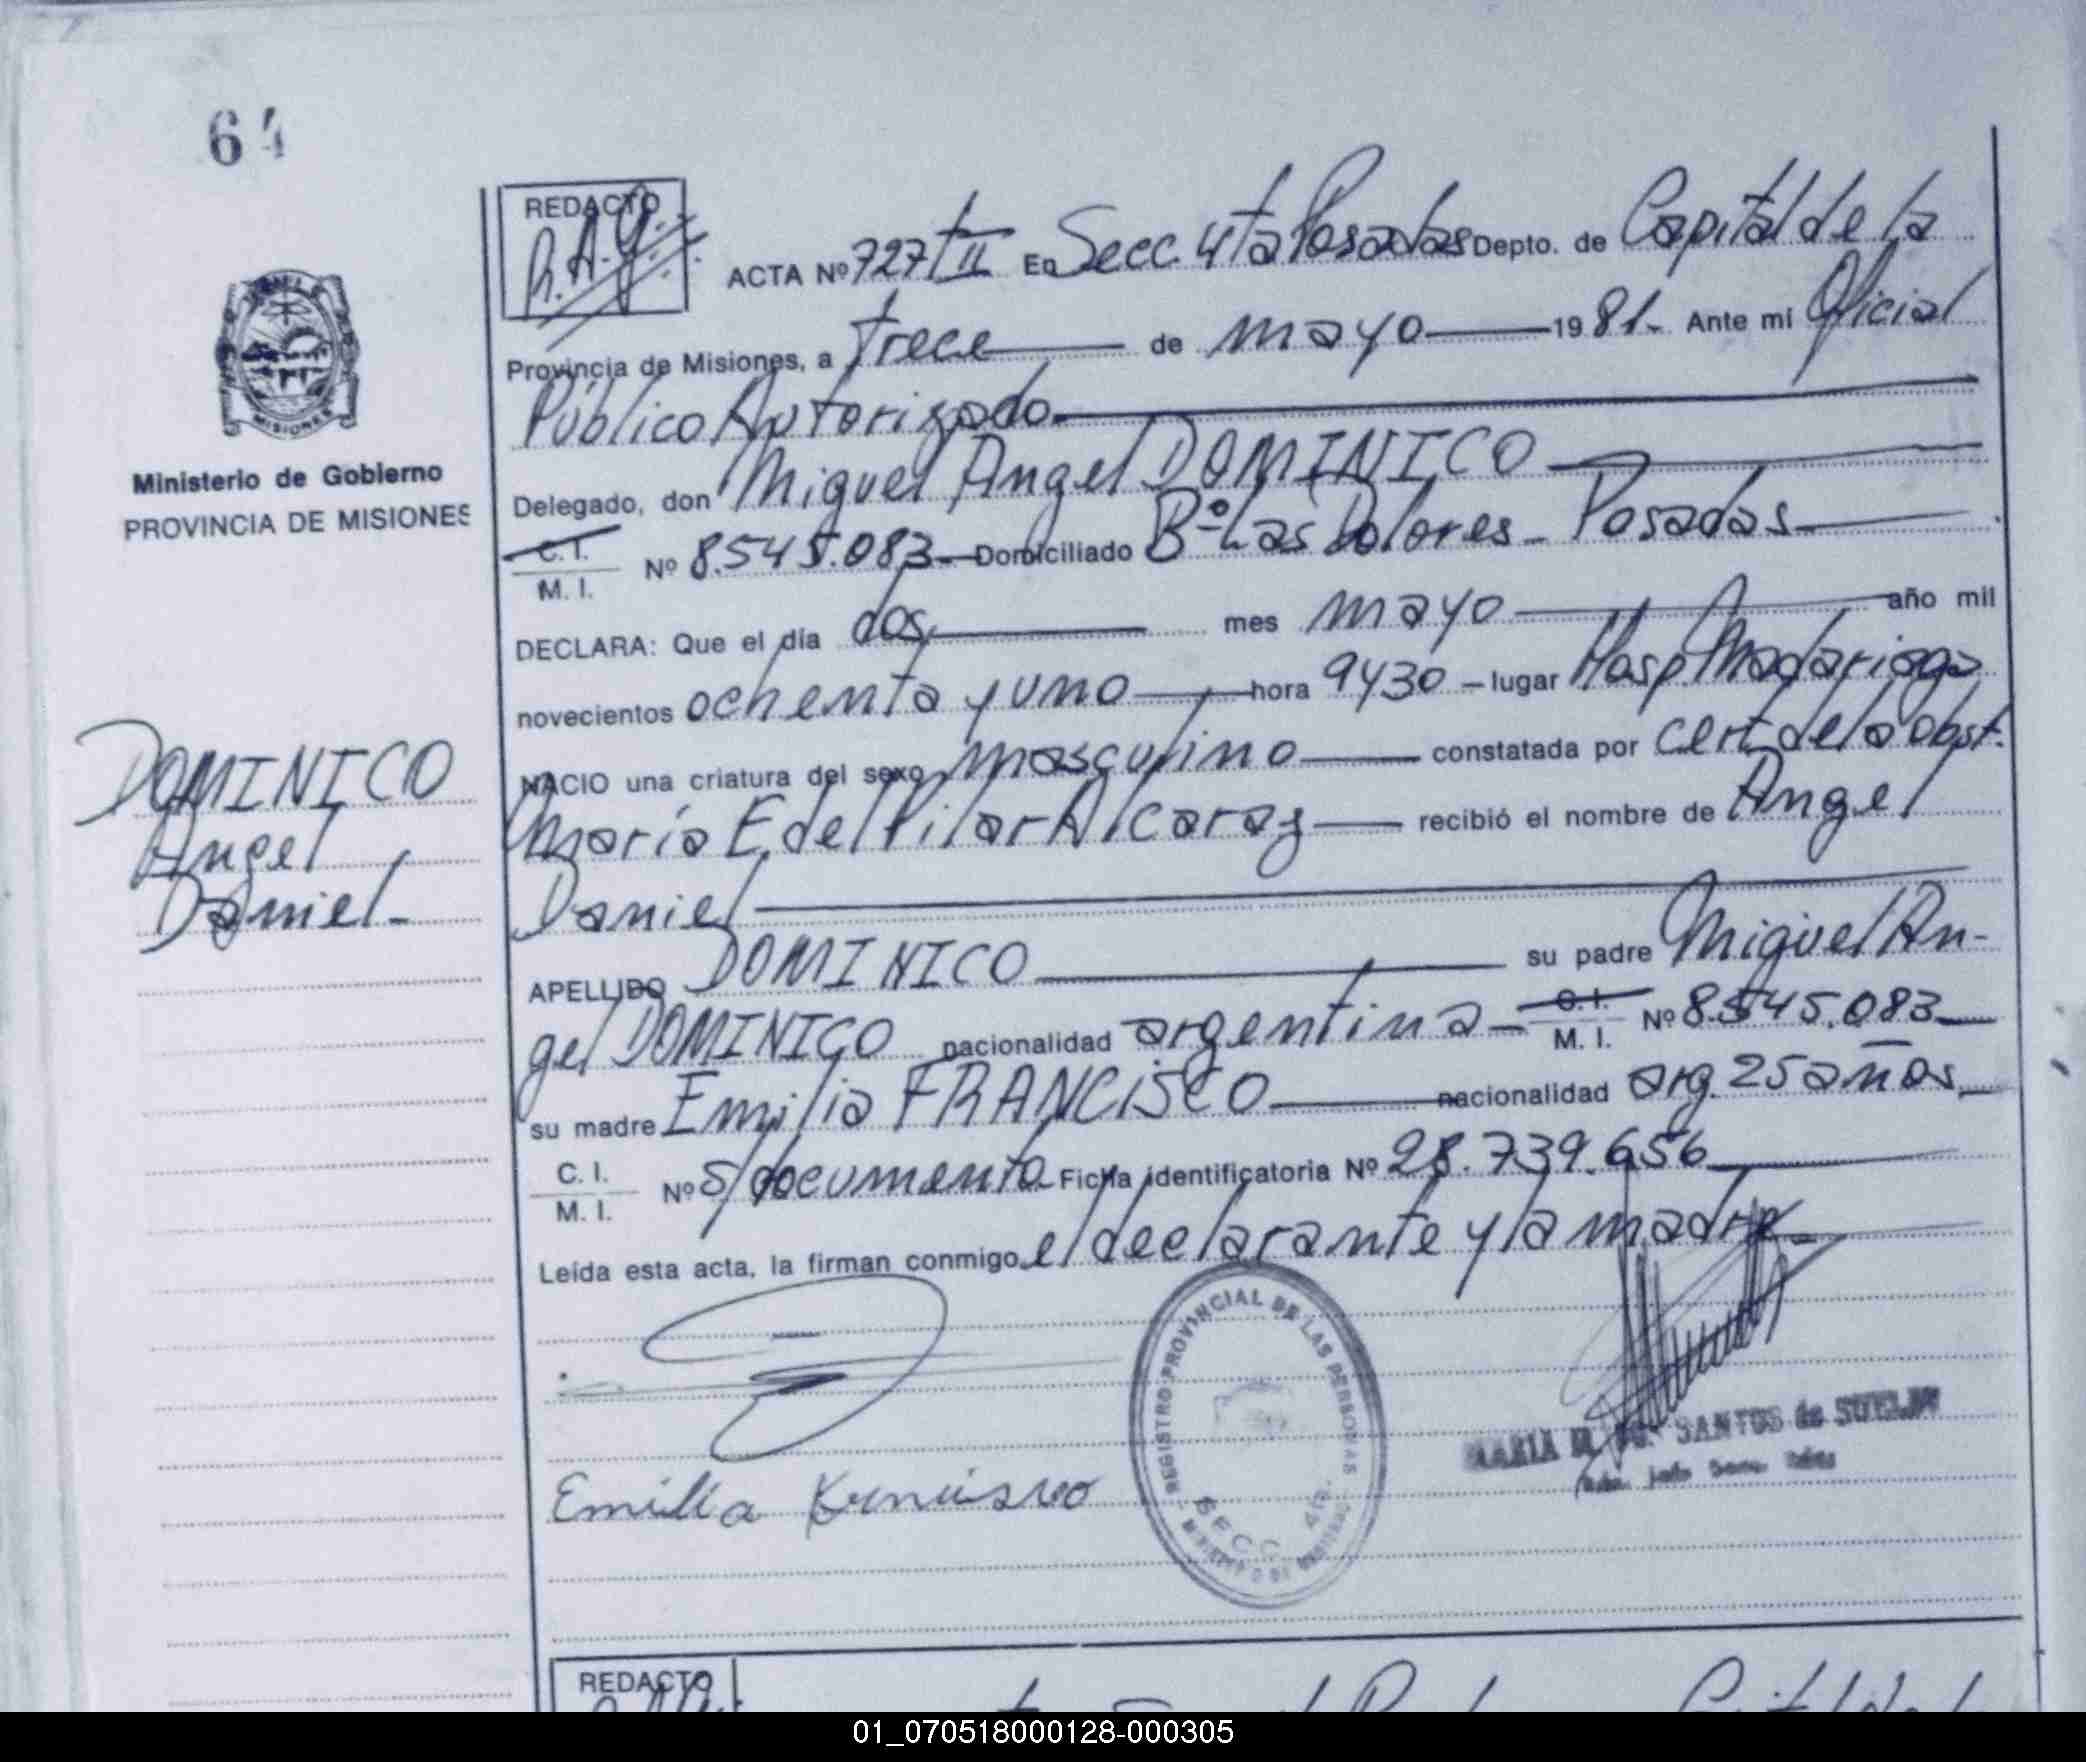 64
REDACTO
R.A.G.
ACTA Nº 727 T II En Secc. 4ta Posadas Depto. de Capital de la
Provincia de Misiones, a trece de mayo 1981.- Ante mi Oficial
Público Autorizado.
Delegado, don Miguel Angel DOMINICO
C. I.
M. I. Nº 8.545.083.- Domiciliado Bº Las Dolores - Posadas
DECLARA: Que el día dos mes mayo año mil
novecientos ochenta y uno hora 9y30 - lugar Hosp Madariaga
NACIO una criatura del sexo masculino constatada por cert. de la obst.
María E del Pilar Alcaraz recibió el nombre de Angel
Daniel
APELLIDO DOMINICO su padre Miguel An-
gel DOMINICO nacionalidad argentina - C. I. M. I. Nº 8.545.083
su madre Emilia FRANCISCO nacionalidad arg. 25 años
C. I.
M. I. Nº S/documento Ficha identificatoria Nº 28.739.656
Leída esta acta, la firman conmigo el declarante y la madre
Emilia
REGISTRO PROVINCIAL DE LAS PERSONAS
SECC. 4ta.
MARIA SANTOS de
Ministerio de Gobierno
PROVINCIA DE MISIONES
MISIONES
DOMINICO
Angel
Daniel.-
REDACTO
01_070518000128-000305